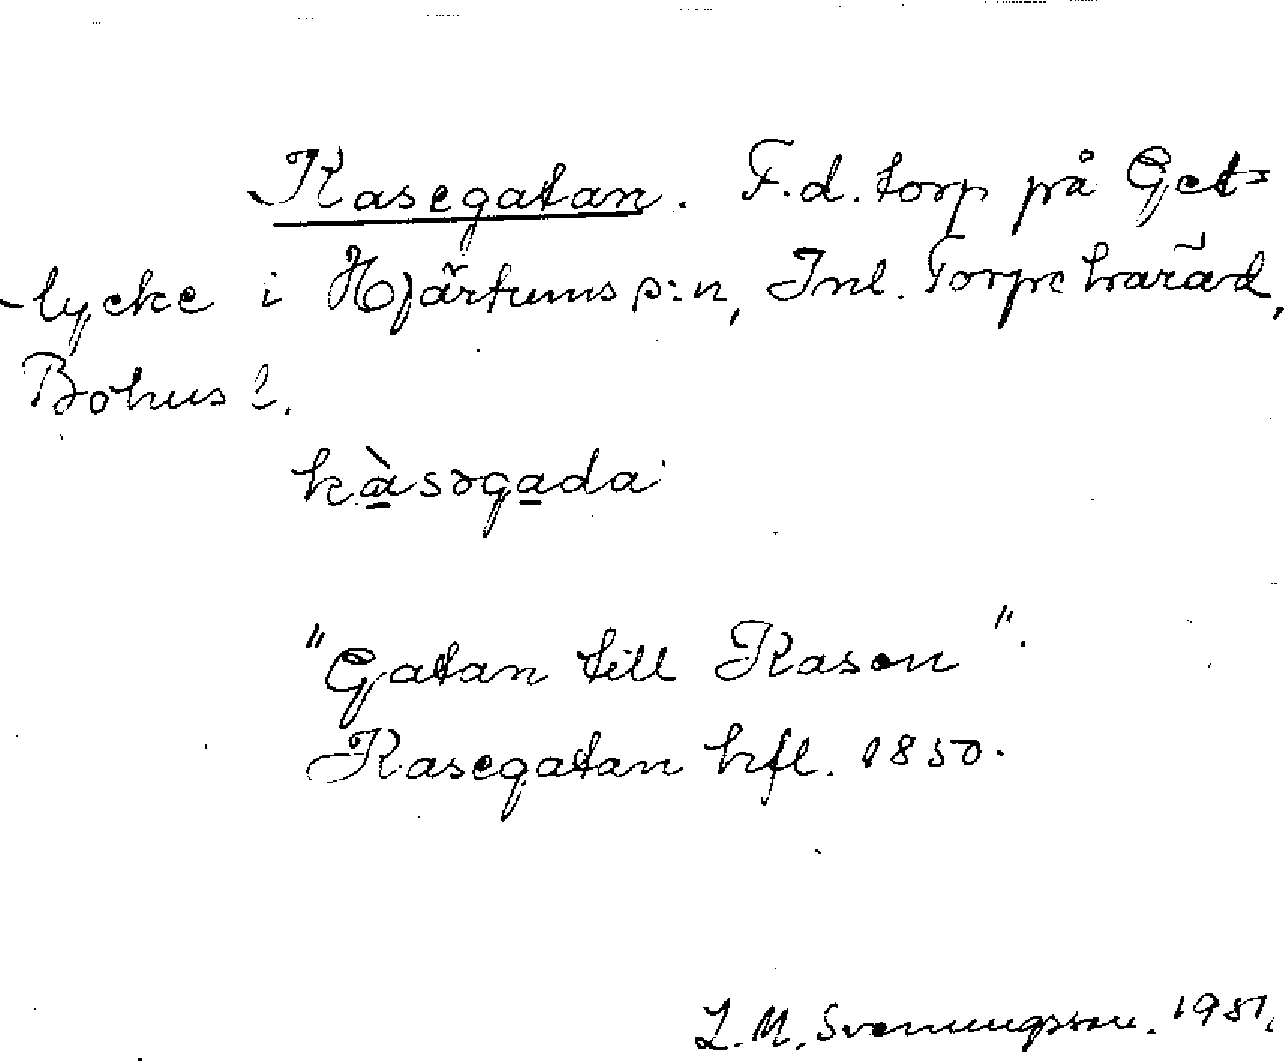 Kasegatan. F.d. torp på Get-
lycke i Hjärtums s:n, Inl. Torpe härad,
Bohus l.
kàsəgada
"Gatan till Kasen".
Kasegatan hfl. 1850.
L.M. Svenungsson. 1951.